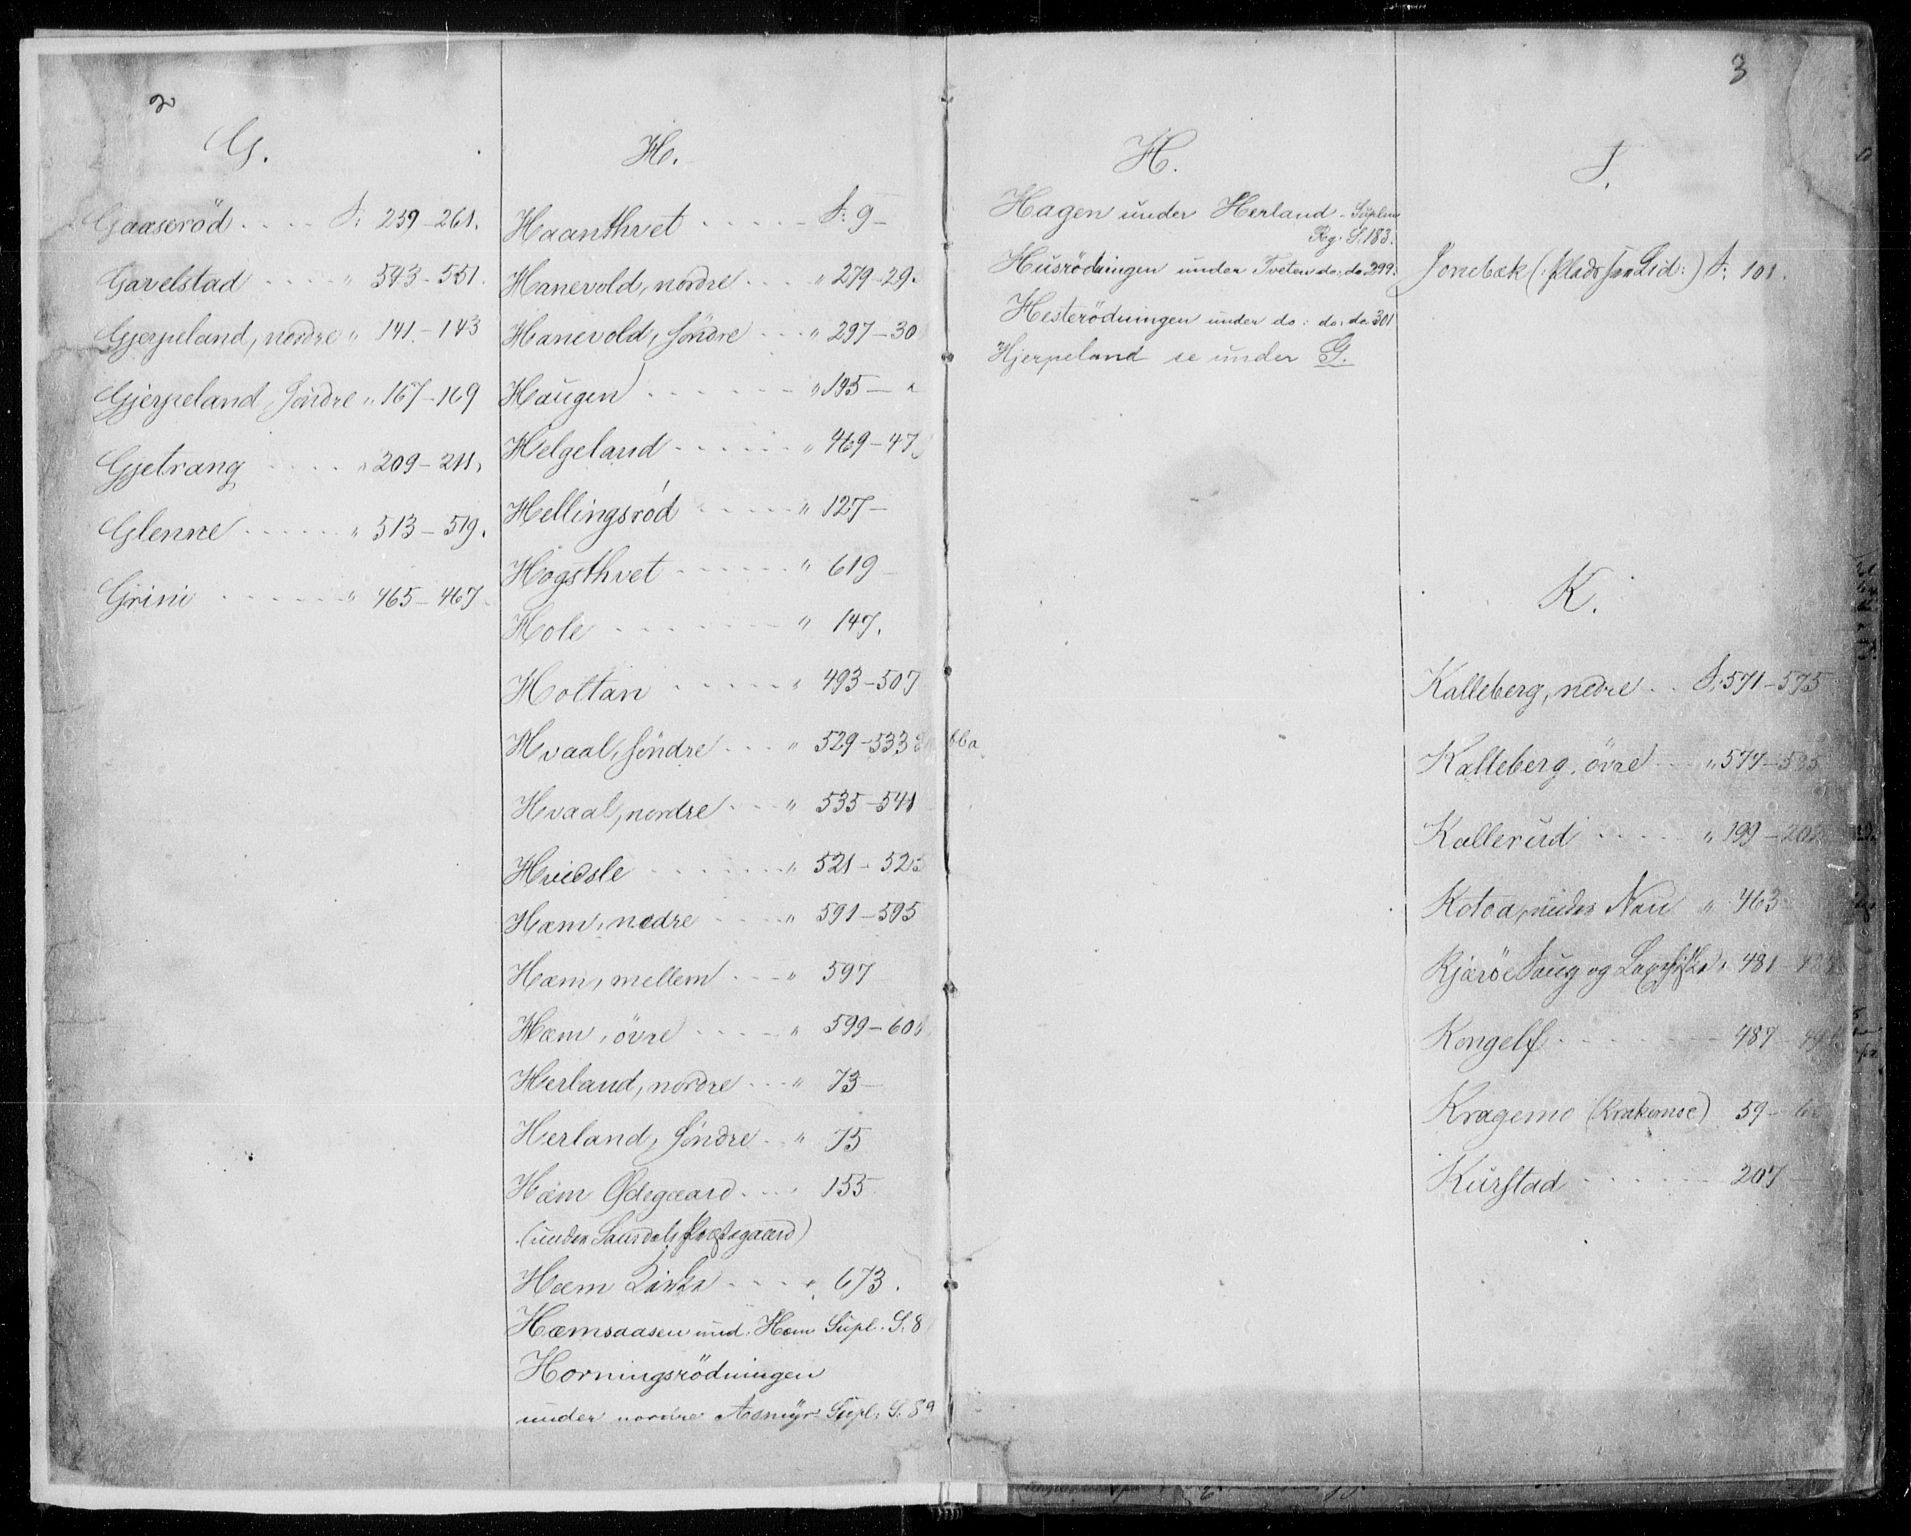 2
G.
Gaaserød S: 259-261.
Gavelstad " 543-551.
Gjerpeland, nordre " 141-143
Gjerpeland, søndre " 167-169
Gjetrang " 209-211.
Glenne " 513-519.
Grini " 465-467
H.
Haanthvet S: 9-
Hanevold, nordre " 279-29
Hanevold, søndre " 297-30
Haugen " 195-
Helgeland " 469-47
Hellingsrød " 127-
Hogsthvet " 619-
Hole " 147.
Holtan " 493-507
Hvaal, søndre " 529-533
Hvaal, nordre " 535-541
Hvidsle " 521-525
Hæm, nedre " 591-595
Hæm, mellem " 597
Hæm, övre " 599-601
Herland, nordre " 73-
Herland, søndre " 75
Hæm Ødegaard 155
(under Saudals Prestegaard)
Hæm Kirke " 673.
Hæmsaasen und. Hæm Supl. S. 8
Horningsrödningen
under nordre Asmyr Supl. S. 89
3
H.
Hagen under Herland - Suplem
Rg. S. 183.
Husrödningen under Tveten do. do. 299.
Hesterödningen under do: do. do. 301
Hjerpeland se under G.
J.
Jonebæk (Plads for Lid:) S: 101.
K.
Kalleberg, nedre S: 571-575
Kalleberg, övre " 577-585
Kallerud " 199-20
Kotoa, under Nau " 463
Kjærøe Saug og Laxefiske " 481-
Kongelf 487-49
Kragemo (Krakemoe) 59-6
Kurstad 207-